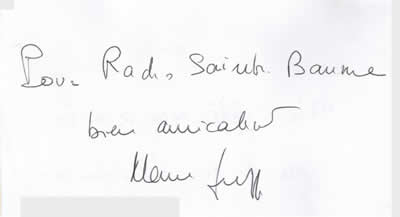 Pour Radio Sainte Baume
bien amicalement